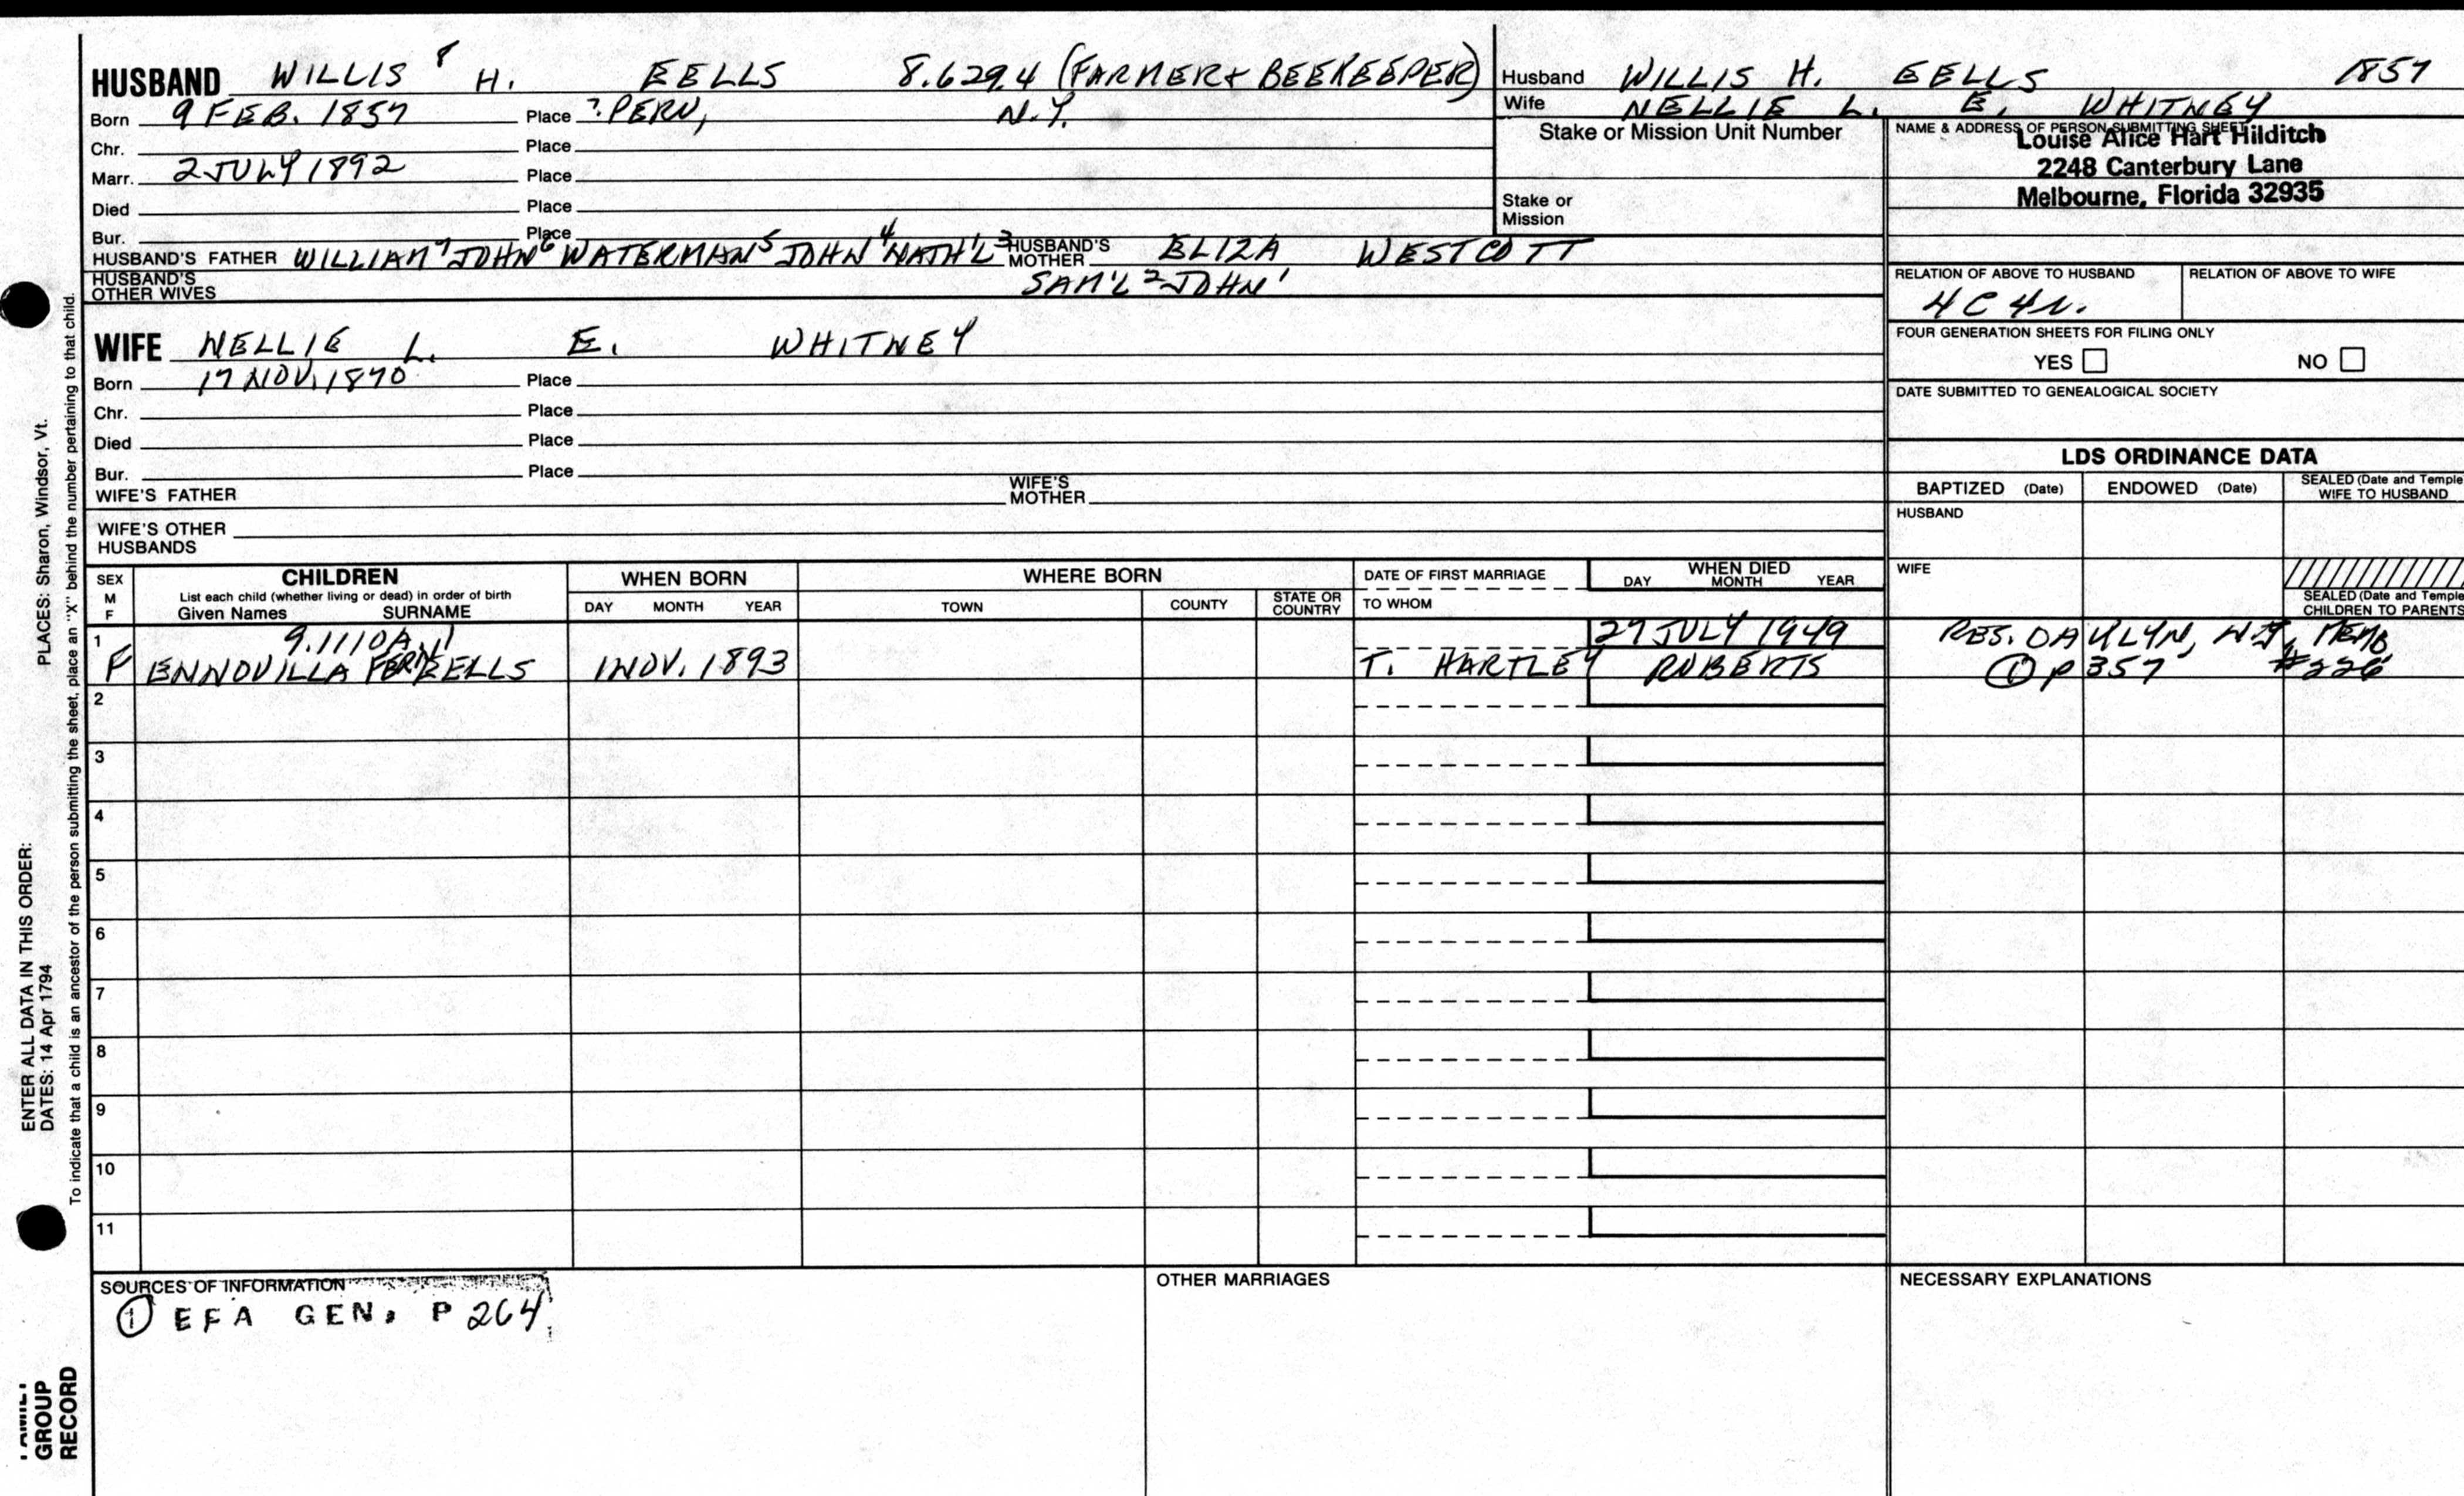 HUSBAND WILLIS 8 H. EELLS 8.629.4 (FARMER & BEEKEEPER)
Born 9 FEB. 1857 Place ? PERU, N.Y.
Chr. Place
Marr. 2 JULY 1892 Place
Died Place
Bur. Place
HUSBAND'S FATHER WILLIAM7 JOHN6 WATERMAN5 JOHN4 NATH'L3 HUSBAND'S MOTHER ELIZA WESTCOTT
SAM'L2 JOHN1
HUSBAND'S OTHER WIVES
WIFE NELLIE L. E. WHITNEY
Born 17 NOV. 1870 Place
Chr. Place
Died Place
Bur. Place
WIFE'S FATHER WIFE'S MOTHER
WIFE'S OTHER HUSBANDS
Husband WILLIS H. EELLS 1857
Wife NELLIE L. E. WHITNEY
Stake or Mission Unit Number
Stake or Mission
NAME & ADDRESS OF PERSON SUBMITTING SHEET
Louise Alice Hart Hilditch
2248 Canterbury Lane
Melbourne, Florida 32935
RELATION OF ABOVE TO HUSBAND RELATION OF ABOVE TO WIFE
4C4r.
FOUR GENERATION SHEETS FOR FILING ONLY
YES NO
DATE SUBMITTED TO GENEALOGICAL SOCIETY
LDS ORDINANCE DATA
BAPTIZED (Date) ENDOWED (Date) SEALED (Date and Temple
WIFE TO HUSBAND
HUSBAND
WIFE
SEALED (Date and Temple
CHILDREN TO PARENTS
SEX M F
CHILDREN
List each child (whether living or dead) in order of birth
Given Names SURNAME
WHEN BORN
DAY MONTH YEAR
WHERE BORN
TOWN COUNTY STATE OR COUNTRY
DATE OF FIRST MARRIAGE
TO WHOM
WHEN DIED
DAY MONTH YEAR
1 9.1110A.1 27 JULY 1949 RES. OAKLYN, N.J. MEMB
F ENNOVILLA FERN EELLS 1 NOV. 1893 T. HARTLEY ROBERTS ① P 357 #226
2
3
4
5
6
7
8
9
10
11
SOURCES OF INFORMATION
① EFA GEN. P 264
OTHER MARRIAGES
NECESSARY EXPLANATIONS
ENTER ALL DATA IN THIS ORDER:
DATES: 14 Apr 1794 PLACES: Sharon, Windsor, Vt.
To indicate that a child is an ancestor of the person submitting the sheet, place an "X" behind the number pertaining to that child.
FAMILY
GROUP
RECORD